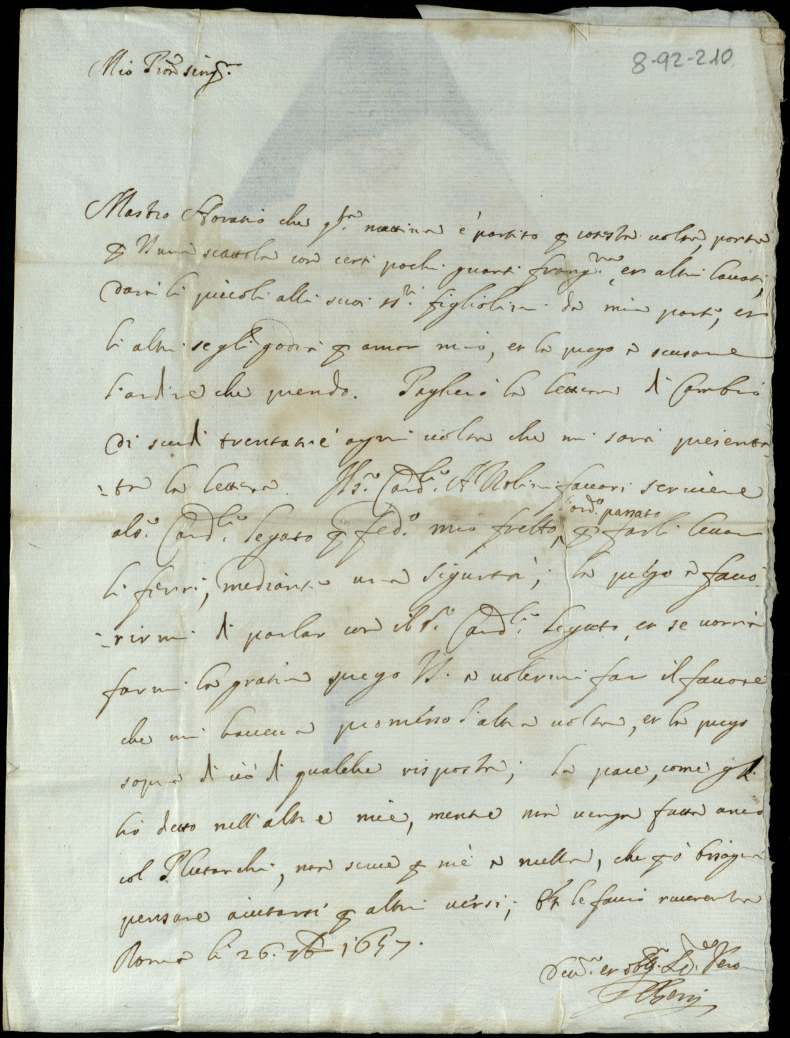 8-92-210
Mio Pron sing.r
Mastro Horatio che q.ta mattina è partito p cotesta volta, porta
p V una scattola con certi pochi guanti et altri lavati,
darà li piccoli alli suoi ss.ri figliolini da mia parte, et
li altri se gli godrà p amor mio, et la prego a scusarme
l'ardire che prendo. Pagherò la lettera di Cambio
di scudi trentatrè ogni volta che mi sarà presenta-
-ta la lettera. Card.l favori scrivere
al s.r Card.l Legato p fed.o mio frello, p farli levar
l'ord.o passato
li ferri, mediante una sigurtà; la prego a favo-
-rirmi di parlar con il s.r Card.l Legato, et se vorrà
farmi la gratia prego VS. a volermi far il favore
che mi haveva promesso l'altra volta, et la prego
sopra di ciò di qualche risposta; la pace, come gli
hò detto nell'altre mie, mentre non venga fatta anco
col Plutarchi, non serve p mè a nulla, che p ò bisogna
pensare aiutarsi p altri versi; le faccio riverenza
Roma li 26. 1657.